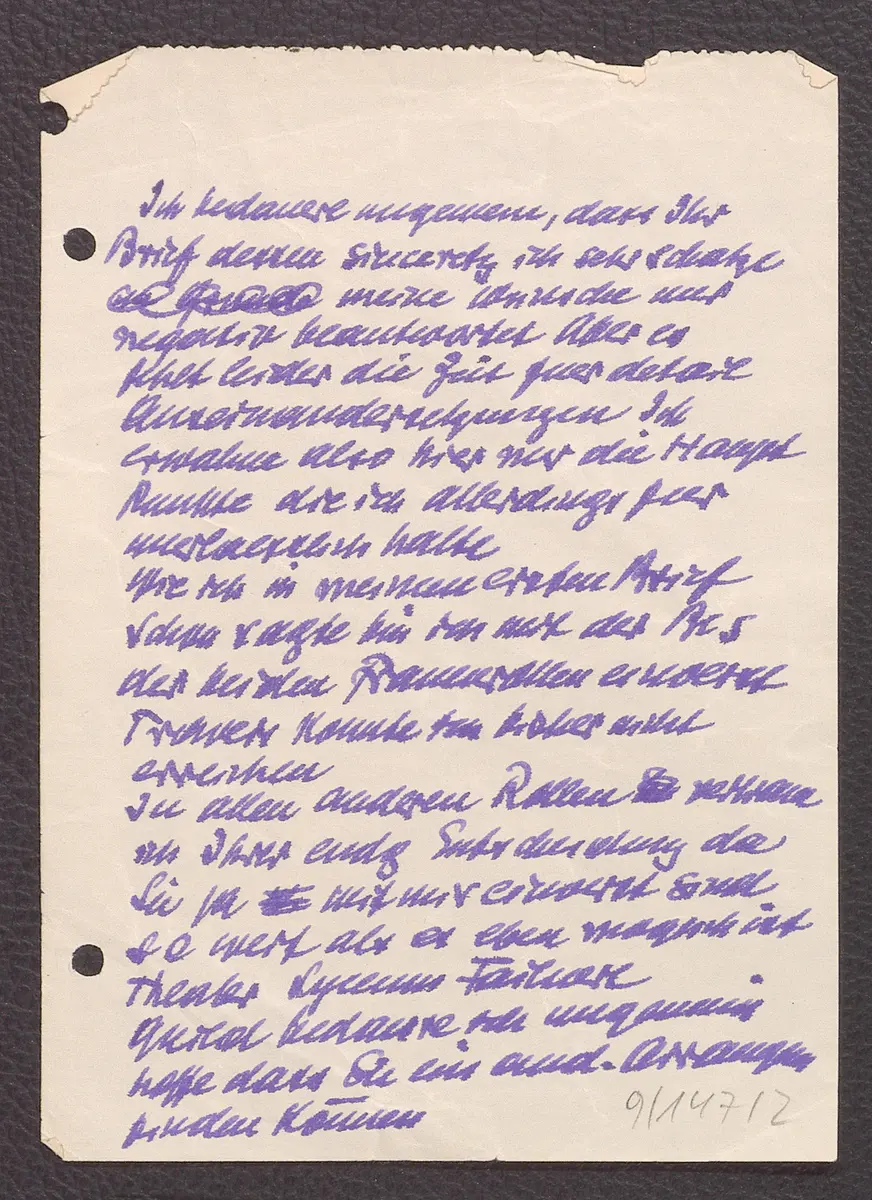 Ich bedauere ungemein, dass Ihr
Brief dessen sincerety ich sehr schatze
meine Wünsche nur
negativ beantwortet Aber es
fehlt leider die Zeit fuer detail
Auseinandersetzungen Ich
erwahne also hier nur die Haupt
Punkte die ich allerdings fuer
unerlaesslich halte
Wie ich in meinem ersten Brief
schon sagte bin ich mit der Bes
der beiden Frauenrollen einverst
konnte ich bisher nicht
erreichen
In allen anderen Rollen vertraue
ich Ihrer endg Entscheidung da
Sie ja mit mir einverst sind
so weit als es eben moeglich ist
Theater Lyceum
Guild bedauere ich ungemein
hoffe dass Sie ein and. Arrangem
finden können
9/147/2